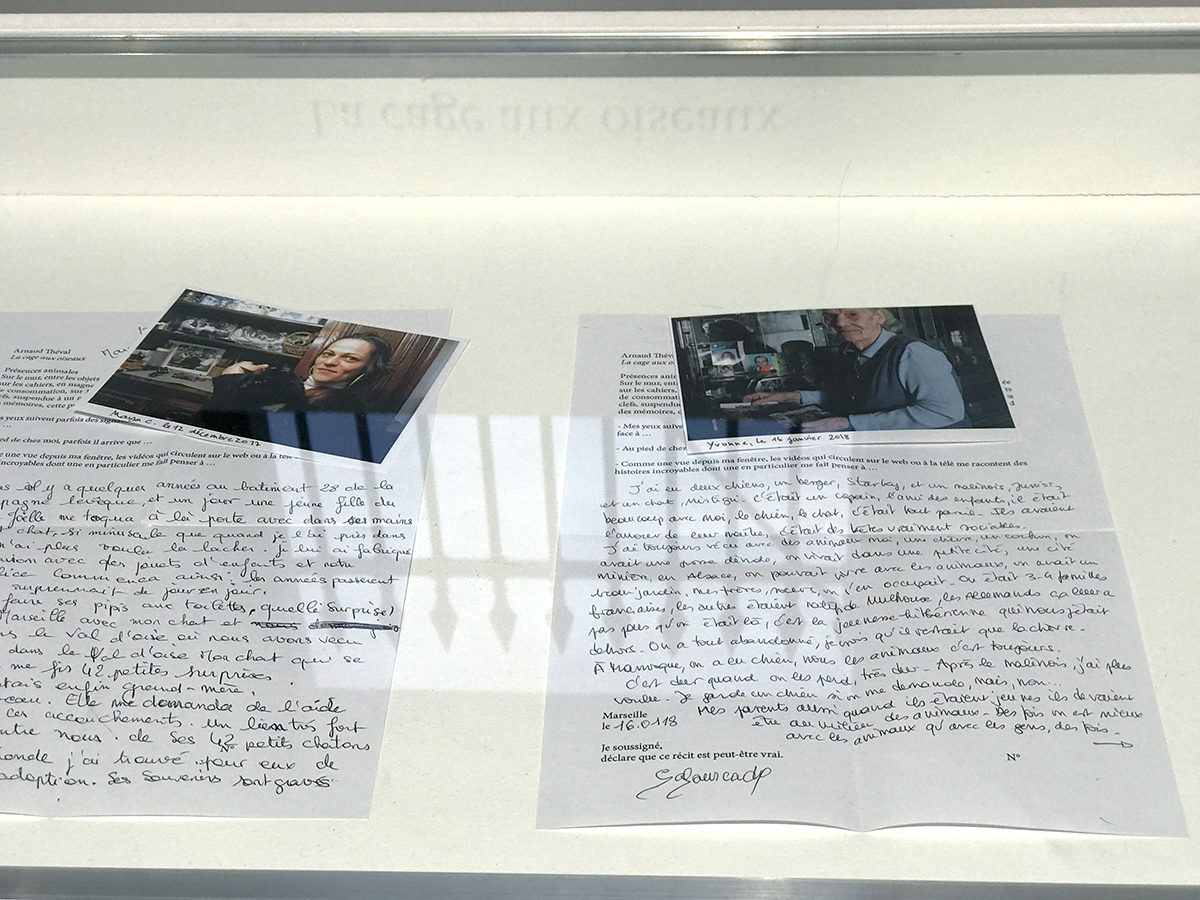 La cage aux oiseaux
Arnaud Théval
La cage aux oiseaux
Présences animales
Sur le mur, entre les objets
sur les cahiers, en magne
de consommation, sur
clefs, suspendue à un
mémoires, cette p
yeux suivent parfois des signau
ied de chez moi, parfois il arrive que …
une vue depuis ma fenêtre, les vidéos qui circulent sur le web ou à la télé
incroyables dont une en particulier me fait penser à …
Maysa C. le 12 décembre 2017
il y a quelques années au batiment 28 de la
pagne lévèque, et un jour une jeune fille du
Joëlle me toqua à la porte avec dans ses mains
chat, si minuscule que quand je l'ai pris dans
n'ai plus voulu la lacher. Je lui ai fabriqué
avec des jouets d'enfants et notre
lice commenca ainsi. les années passèrent
surprennait de jour en jour.
faire ses pipis aux toilettes, quelle surprise)
Marseille avec mon chat et
le Val d'oise où nous avons vecu
dans le Val d'oise Mon chat qui se
me fis 42 petites surprises
tais enfin grand-mère.
Elle me demanda de l'aide
ces accouchements. Un lien très fort
entre nous. de ses 42 petits chatons
monde j'ai trouvé pour eux de
adoption. Ses souvenirs sont gravés
Arnaud Thév
La cage aux o
Présences ani
Sur le mur, en
sur les cahiers
de consommat
clefs, suspendu
des mémoires,
- Mes yeux suive
face à …
- Au pied de chez
- Comme une vue depuis ma fenêtre, les vidéos qui circulent sur le web ou à la télé me racontent des
histoires incroyables dont une en particulier me fait penser à …
Yvonne, le 16 janvier 2018
J'ai eu deux chiens, un berger, Starky, et un malinois, Junior,
et un chat, Mistigri. C'était un copain, l'ami des enfants, il était
beaucoup avec moi, le chien, le chat, c'était tout pareil. Ils avaient
l'amour de leur maître, c'était des bêtes vraiment sociables.
J'ai toujours vécu avec des animaux moi, un chien, un cochon, on
avait une dinde, on vivait dans une petite cité, une cité
minière, en Alsace, on pouvait vivre avec les animaux, on avait un
beau jardin, mes frères, on s'en occupait. On était 3-4 familles
françaises, les autres étaient de Mulhouse, les Allemands
pas plus qu'on était là, c'est la jeunesse hitlérienne qui nous jetait
dehors. On a tout abandonné, je crois qu'il restait que la chèvre.
À Manosque, on a eu chien, nous les animaux c'est toujours.
C'est dur quand on les perd, très dur. Après le malinois, j'ai plus
voulu. Je garde un chien si on me demande, mais, non…
Mes parents aussi quand ils étaient jeunes ils devaient
être au milieu des animaux. Des fois on est mieux
avec les animaux qu'avec les gens, des fois.
Marseille
le 16.0118
Je soussigné,
déclare que ce récit est peut-être vrai.
N°